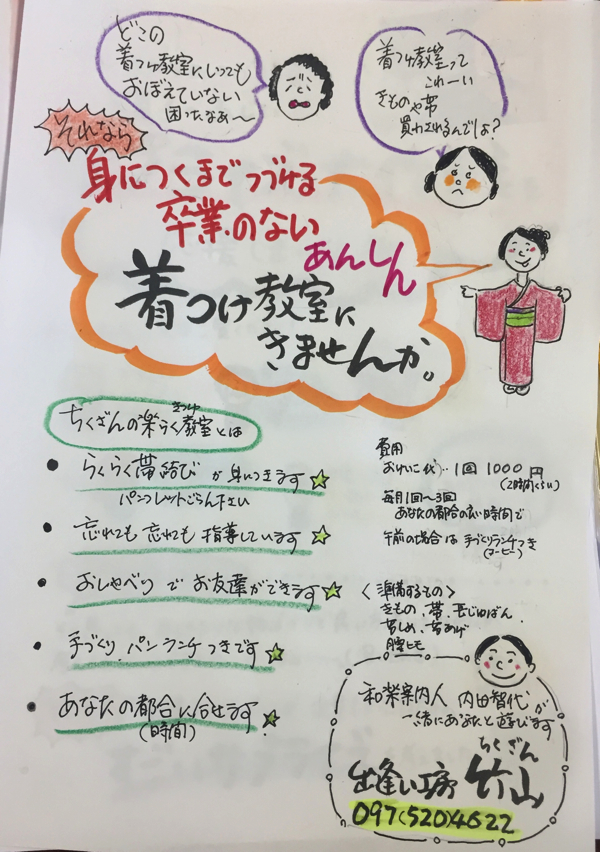 どこの
着つけ教室にいっても
おぼえていない
困ったなぁ〜
着つけ教室って
これーい
きものや帯
買わされるんでしょ?
それなら
身につくまでつづける
卒業のない
あんしん
着つけ教室に
きませんか。
ちくざんの楽らく教室とは
きつけ
• らくらく帯結びが身につきます☆
パンフレットごらん下さい
• 忘れても忘れても指導しています☆
• おしゃべりでお友達ができます☆
• 手づくりパンランチつきです☆
• あなたの都合に合せます☆
(時間)
費用
おけいこ代)‥1回 1000円
(2時間くらい)
毎月1回〜3回
あなたの都合の良い時間で
午前の場合は手づくりランチつき
(コーヒー)
<準備するもの>
きもの、帯、長じゅばん
帯じめ、帯あげ
腰ヒモ
和楽案内人 内田智代が
一緒にあなたと遊びます
ちくざん
出逢い工房 竹山
097(520)4622